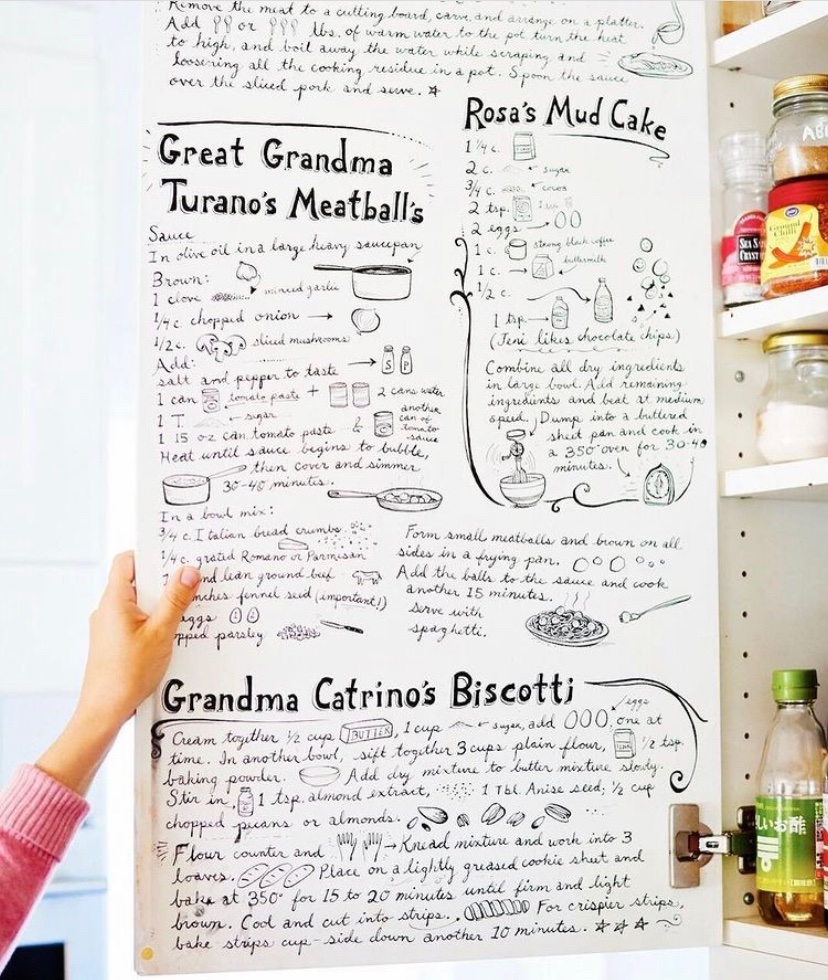 Remove the meat to a cutting board, carve, and arrange on a platter.
Add or lbs. of warm water to the pot turn the heat
to high, and boil away the water while scraping and
loosening all the cooking residue in a pot. Spoon the sauce
over the sliced pork and serve.
Great Grandma
Turano's Meatball's
Sauce
In olive oil in a large heavy saucepan
Brown:
1 clove minced garlic
1/4 c. chopped onion
1/2 c. sliced mushrooms
Add:
salt and pepper to taste
S P
1 can tomato paste + 2 cans water
1 T. sugar
another
can of
tomato
sauce
1 15 oz can tomato paste &
Heat until sauce begins to bubble,
then cover and simmer
30-40 minutes.
In a bowl mix:
3/4 c. Italian bread crumbs
1/4 c. grated Romano or Parmesan
lean ground beef
fennel seed (important!)
eggs
parsley
Form small meatballs and brown on all
sides in a frying pan.
Add the balls to the sauce and cook
another 15 minutes.
serve with
spaghetti.
Rosa's Mud Cake
1 1/4 c.
2 c. sugar
3/4 c. cocoa
2 tsp.
2 eggs
1 c. strong black coffee
1 c. buttermilk
1/2 c.
1 tsp
(Jeni likes chocolate chips)
Combine all dry ingredients
in large bowl. Add remaining
ingredients and beat at medium
speed. Dump into a buttered
sheet pan and cook in
a 350° oven for 30-40
minutes.
Grandma Catrino's Biscotti
eggs
Cream together 1/2 cup BUTTER, 1 cup sugar, add , one at
time. In another bowl, sift together 3 cups plain flour, 1/2 tsp.
baking powder. Add dry mixture to butter mixture slowly.
Stir in 1 tsp. almond extract, 1 Tbl. Anise seed, 1/2 cup
chopped pecans or almonds.
Flour counter and Knead mixture and work into 3
loaves. Place on a lightly greased cookie sheet and
bake at 350° for 15 to 20 minutes until firm and light
brown. Cool and cut into strips. For crispier strips,
bake strips cup-side down another 10 minutes.
Sea Salt
Ground
Chili
いお酢